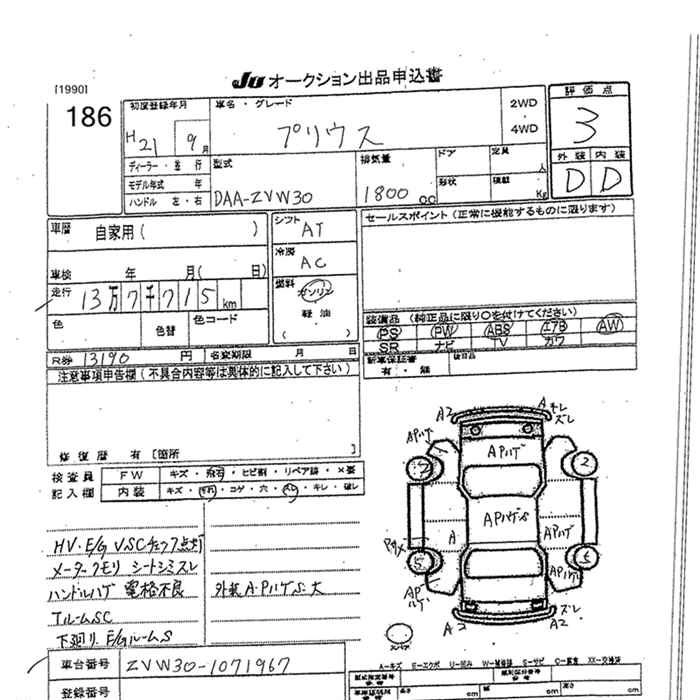 JU オークション出品申込書
[1990]
186
初度登録年月
H 21 9月
車名・グレード
プリウス
2WD
4WD
評価点
3
外装 内装
D D
ディーラー・並行
モデル年式 年
ハンドル 左・右
型式
DAA-ZVW30
排気量
1800 CC
ドア
定員 人
形状
積載 Kg
車歴 自家用( )
車検 年 月( 日)
走行 13万7千715km
色 色替 色コード
シフト AT
冷房 AC
燃料 ガソリン
軽油
( )
セールスポイント(正常に機能するものに限ります)
装備品(純正品に限り○を付けてください)
PS PW ABS エアB AW
SR ナビ TV カワ
新車保証書 後日品
有・無
R券 13190 円 名変期限 月 日
注意事項申告欄(不具合内容等は具体的に記入して下さい)
修復歴 有[箇所 ]
検査員 FW キズ・飛石・ヒビ割・リペア跡・×要
記入欄 内装 キズ・汚れ・コゲ・穴・スレ・キレ・破レ
HV・E/G VSCチェック点灯
メータークモリ シートシミスレ
ハンドルハゲ 電格不良
TルームSC
下廻り、E/GルームS
外装A・PハゲS・大
A2 Aキレ
ズレ
APハゲ
APハゲ
2
APハゲS
A
APハゲ
5
APハゲ
APハゲ
A2
ズレ
A2
A-キズ E-エクボ U-凹み W-補修跡 S-サビ C-腐食 XX-交換済
車台番号 ZVW30-1071967
登録番号